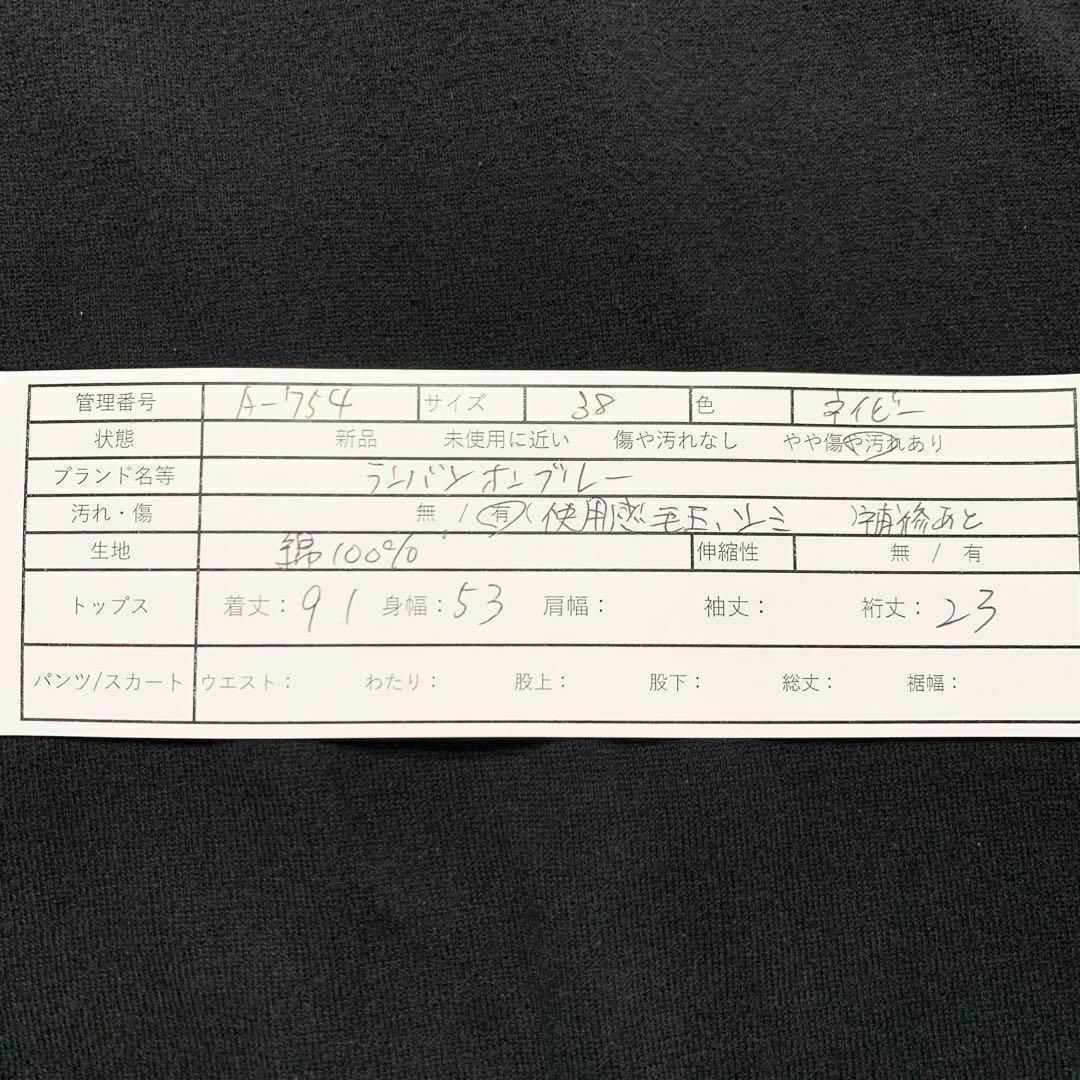 管理番号 A-754 サイズ 38 色 ネイビー
状態 新品 未使用に近い 傷や汚れなし やや傷や汚れあり
ブランド名等 ランバンオンブルー
汚れ・傷 無 / 有 (使用感、毛玉、シミ )補修あと
生地 綿100% 伸縮性 無 / 有
トップス 着丈：91 身幅：53 肩幅： 袖丈： 裄丈：23
パンツ/スカート ウエスト： わたり： 股上： 股下： 総丈： 裾幅：